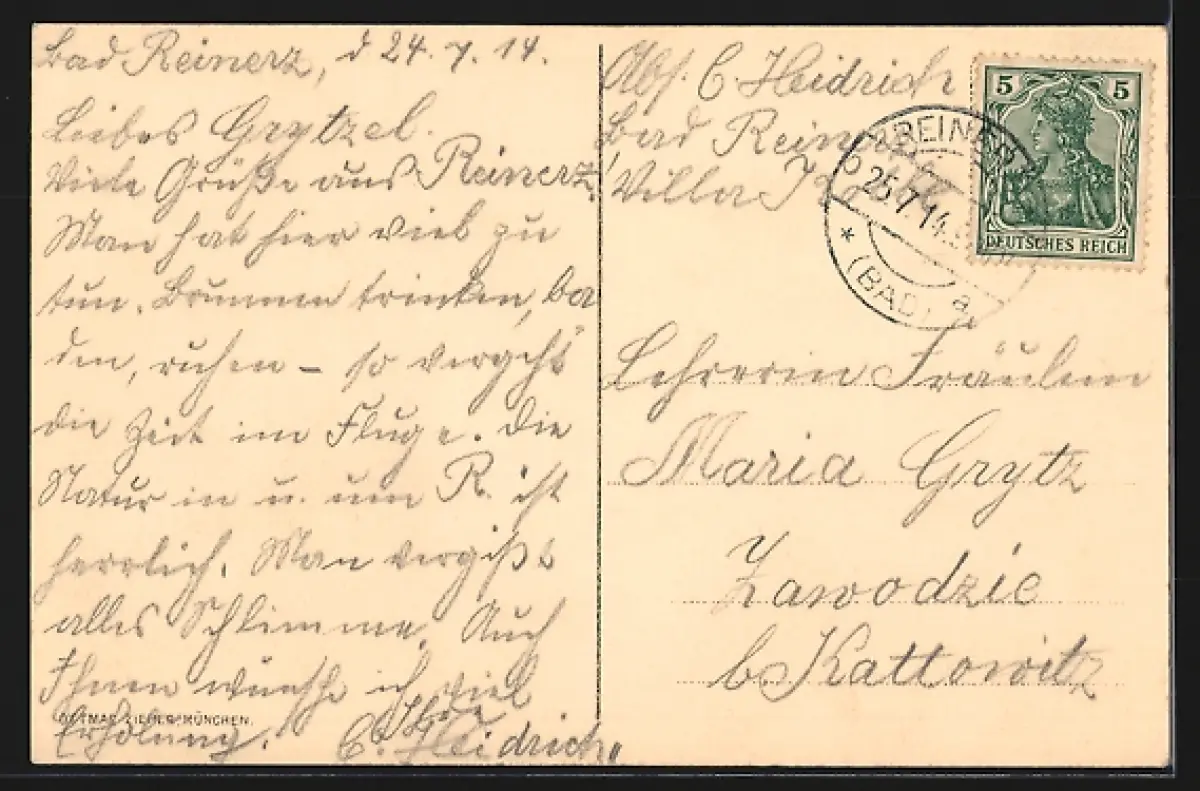 Bad Reinerz, d 24. 7. 14.
Liebes Grytzel.
Viele Grüße aus Reinerz.
Man hat hier viel zu
tun. Brunnen trinken, ba
den, ruhen – so vergeht
die Zeit im Fluge. Die
Natur in u. um R. ist
herrlich. Man vergißt
alles Schlimme. Auch
Ihnen wünsche ich viel
Erholung. Ihre
C. Heidrich.
OTTMAR ZIEHER, MÜNCHEN.
Abs. C. Heidrich
Bad Reinerz
Villa
5 5
DEUTSCHES REICH
REINERZ
25.7.14.
* (BAD) a
Lehrerin Fräulein
Maria Grytz
Zawodzie
b. Kattowitz